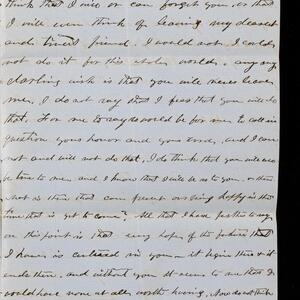 think that I will or can forget you, or that
I will even think of leaving my dearest
and truest friend. I would not, I could
not do it for this whole world. any my
darling wish is that you will never leave
me, I do not say that I fear that you will do
that. For me to say so would be for me to call in
question your honor and your love, and I can
not and will not do that, I do think that you will
be true to me and I know that I will be so to you,
what is there that can prevent our being happy in the
time that is yet to come? All that I have further to say
on this point is that every hope of the future that
I have is centered in you — it begins there & it
ends there, and without you it seems to me that I
would have none at all worth having. Now